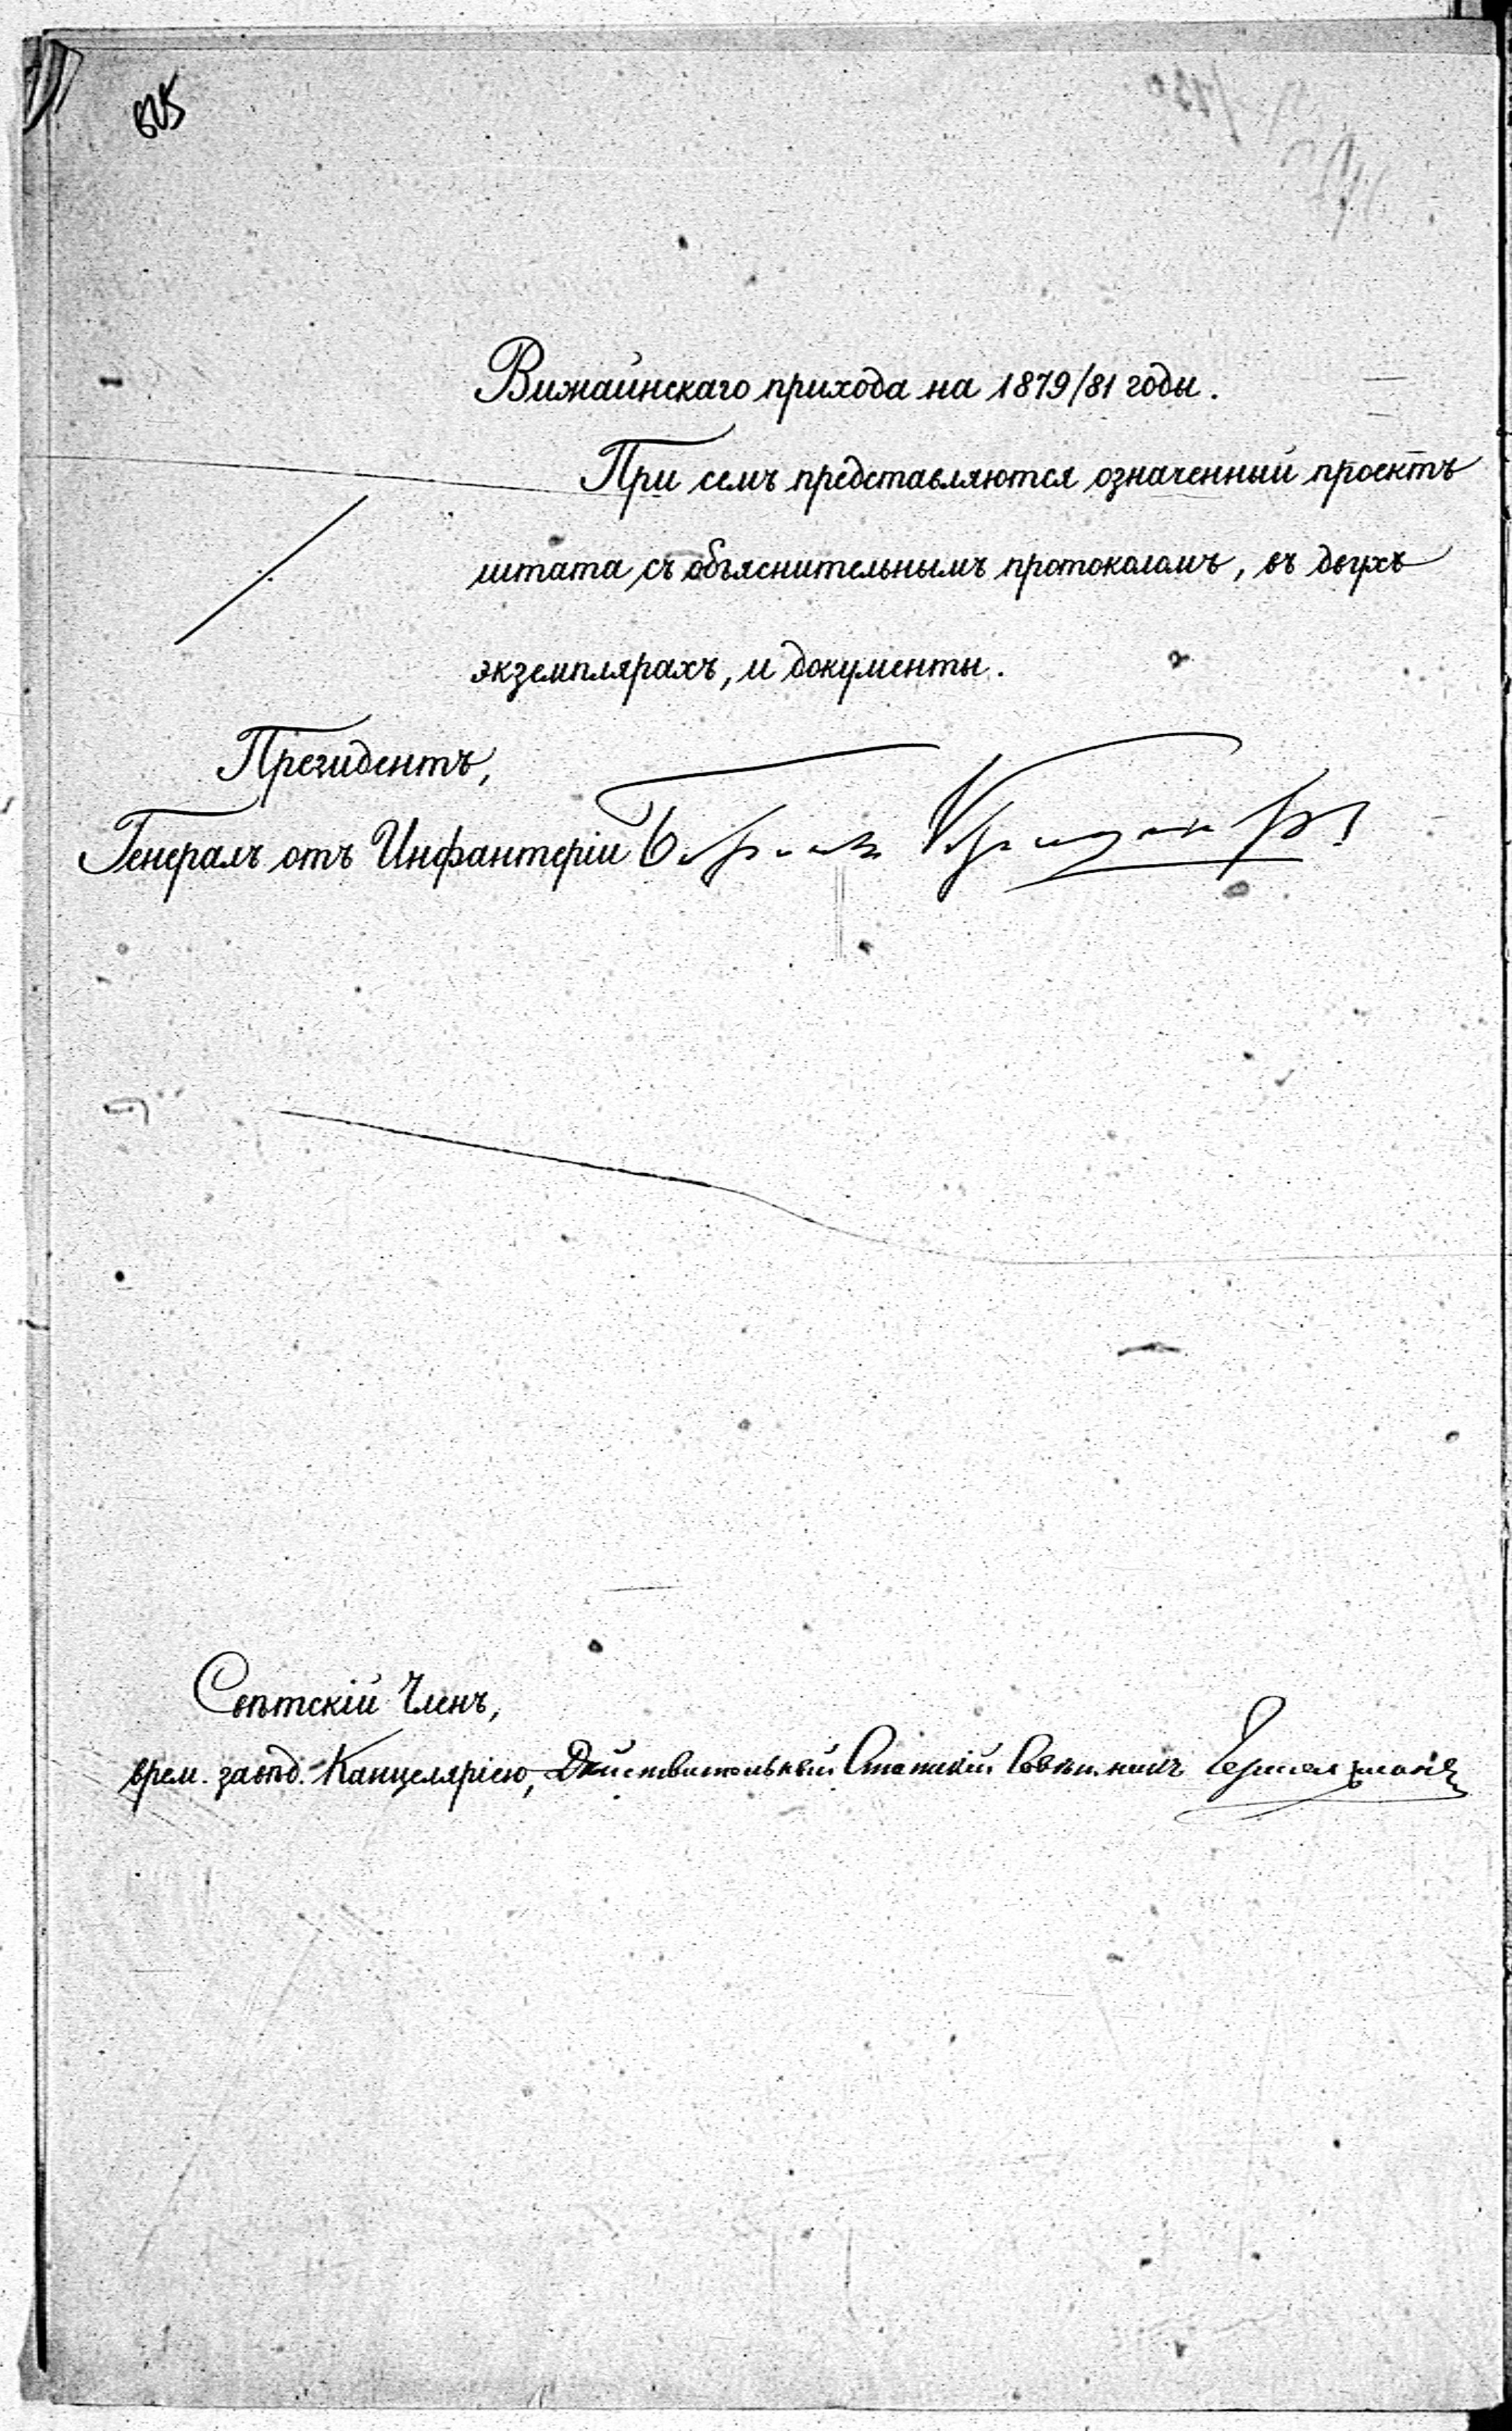 Вижайнскаго прихода на 1879/81 годы.
При семъ представляются означенный проектъ
штата съ объяснительнымъ протоколомъ, въ двухъ
экземплярахъ, и документы.
Президентъ,
Генералъ отъ Инфантеріи Баронъ
Свѣтскій Членъ,
врем. завѣд. Канцеляріею, Дѣйствительный Статскій Совѣтникъ